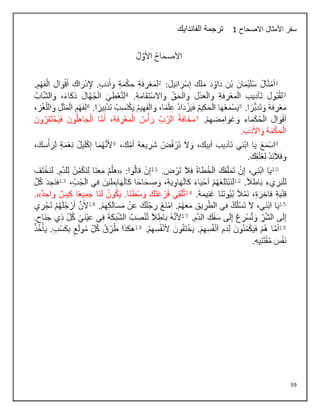 سفر الأمثال الاصحاح 1 ترجمة الفاندايك
الأصحَاحُ الأَوَّلُ
1أَمْثَالُ سُلَيْمَانَ بْنِ دَاوُدَ مَلِكِ إِسْرَائِيلَ: 2لِمَعْرِفَةِ حِكْمَةٍ وَأَدَبٍ. لإِدْرَاكِ أَقْوَالِ الْفَهْمِ.
3لِقُبُولِ تَأْدِيبِ الْمَعْرِفَةِ وَالْعَدْلِ وَالْحَقِّ وَالاسْتِقَامَةِ. 4لِتُعْطِيَ الْجُهَّالَ ذَكَاءً، وَالشَّابَّ
مَعْرِفَةً وَتَدَبُّرًا. 5يَسْمَعُهَا الْحَكِيمُ فَيَزْدَادُ عِلْمًا، وَالْفَهِيمُ يَكْتَسِبُ تَدْبِيرًا. 6لِفَهْمِ الْمَثَلِ وَاللُّغْزِ،
أَقْوَالِ الْحُكَمَاءِ وَغَوَامِضِهِمْ. 7مَخَافَةُ الرَّبِّ رَأْسُ الْمَعْرِفَةِ، أَمَّا الْجَاهِلُونَ فَيَحْتَقِرُونَ
الْحِكْمَةَ وَالأَدَبَ.
8اِسْمَعْ يَا ابْنِي تَأْدِيبَ أَبِيكَ، وَلاَ تَرْفُضْ شَرِيعَةَ أُمِّكَ، 9لأَنَّهُمَا إِكْلِيلُ نِعْمَةٍ لِرَأْسِكَ،
وَقَلاَئِدُ لِعُنُقِكَ.
10يَا ابْنِي، إِنْ تَمَلَّقَكَ الْخُطَاةُ فَلاَ تَرْضَ. 11إِنْ قَالُوا: «هَلُمَّ مَعَنَا لِنَكْمُنْ لِلدَّمِ. لِنَخْتَفِ
لِلْبَرِيءِ بَاطِلاً. 12لِنَبْتَلِعْهُمْ أَحْيَاءً كَالْهَاوِيَةِ، وَصِحَاحًا كَالْهَابِطِينَ فِي الْجُبِّ، 13فَنَجِدَ كُلَّ
قِنْيَةٍ فَاخِرَةٍ، نَمْلأَ بُيُوتَنَا غَنِيمَةً. 14تُلْقِي قُرْعَتَكَ وَسْطَنَا. يَكُونُ لَنَا جَمِيعًا كِيسٌ وَاحِدٌ».
15يَا ابْنِي، لاَ تَسْلُكْ فِي الطَّرِيقِ مَعَهُمْ. اِمْنَعْ رِجْلَكَ عَنْ مَسَالِكِهِمْ. 16لأَنَّ أَرْجُلَهُمْ تَجْرِي
إِلَى الشَّرِّ وَتُسْرِعُ إِلَى سَفْكِ الدَّمِ. 17لأَنَّهُ بَاطِلاً تُنْصَبُ الشَّبَكَةُ فِي عَيْنَيْ كُلِّ ذِي جَنَاحٍ.
18أَمَّا هُمْ فَيَكْمُنُونَ لِدَمِ أَنْفُسِهِمْ. يَخْتَفُونَ لأَنْفُسِهِمْ. 19هكَذَا طُرُقُ كُلِّ مُولَعٍ بِكَسْبٍ. يَأْخُذُ
نَفْسَ مُقْتَنِيهِ.
59